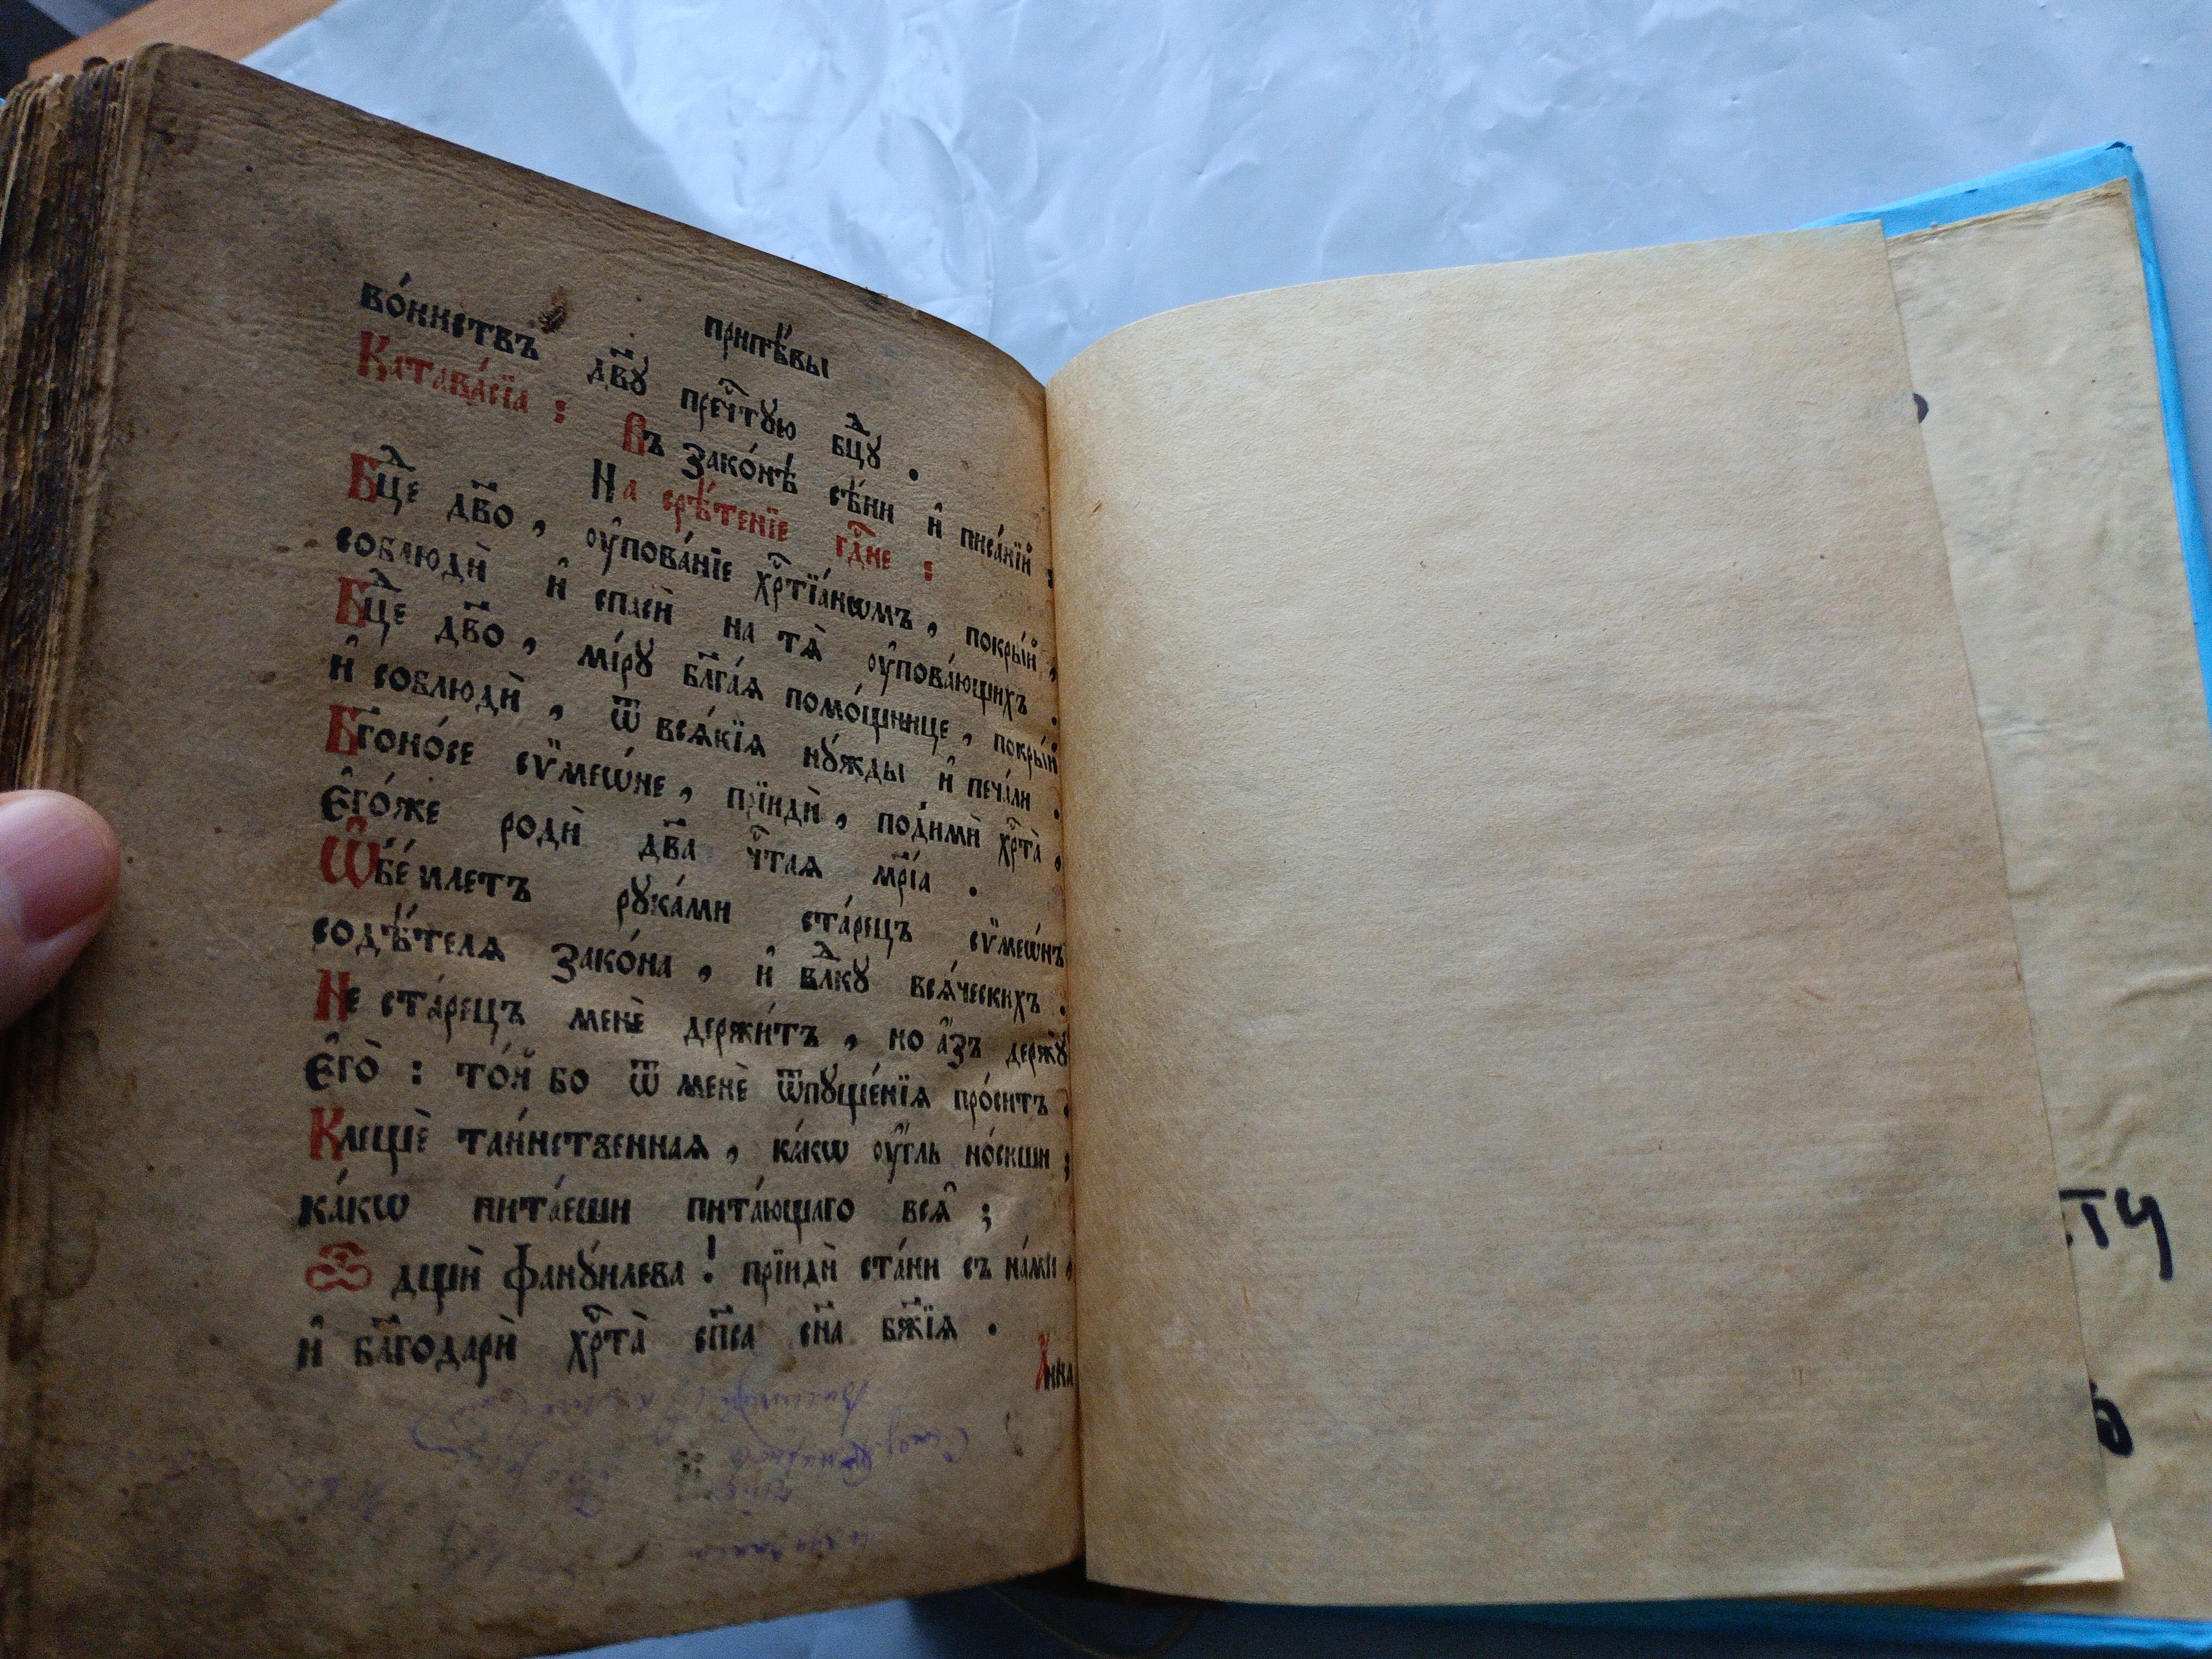 припѣ́вы
во́инствъ дв҃ꙋ пречⷭ҇тꙋю бцⷣꙋ .
Катава́сїа : Въ зако́нѣ сѣ́ни и҆ писа́нїй :
На срѣ́тенїе гдⷭ҇не :
Бцⷣе дв҃о , ᲂу҆пова́нїе хрⷭ҇тїа́нѡмъ , покры́й ,
соблюдѝ и҆ спасѝ на тѧ̀ ᲂу҆пова́ющихъ .
Бцⷣе дв҃о , мі́рꙋ бл҃га́ѧ помо́щнице , покры́й
и҆ соблюдѝ , ѿ всѧ́кїѧ нꙋ́жды и҆ печа́ли .
Бг҃оно́се сѷмеѡ́не , прїидѝ , подимѝ хрⷭ҇та̀ ,
є҆го́же родѝ дв҃а чⷭ҇таѧ мр҃і́а .
Ѡ҆б̾е́млетъ рꙋка́ми ста́рецъ сѷмеѡ́нъ
содѣ́телѧ зако́на , и҆ влⷣкꙋ всѧ́ческихъ .
Не ста́рецъ менѐ держи́тъ , но а҆́зъ держꙋ̀
є҆го̀ : то́й бо ѿ менѐ ѿпꙋще́нїѧ про́ситъ .
Клещѐ таи́нственнаѧ , ка́кѡ ᲂу҆́гль но́сиши ;
ка́кѡ пита́еши пита́ющаго всѧ̑ ;
Ѽ дщѝ фанꙋ́илева ! прїидѝ ста́ни съ на́ми ,
и҆ бл҃годарѝ хрⷭ҇та̀ сп҃са сн҃а бж҃їѧ .
А҆́нна